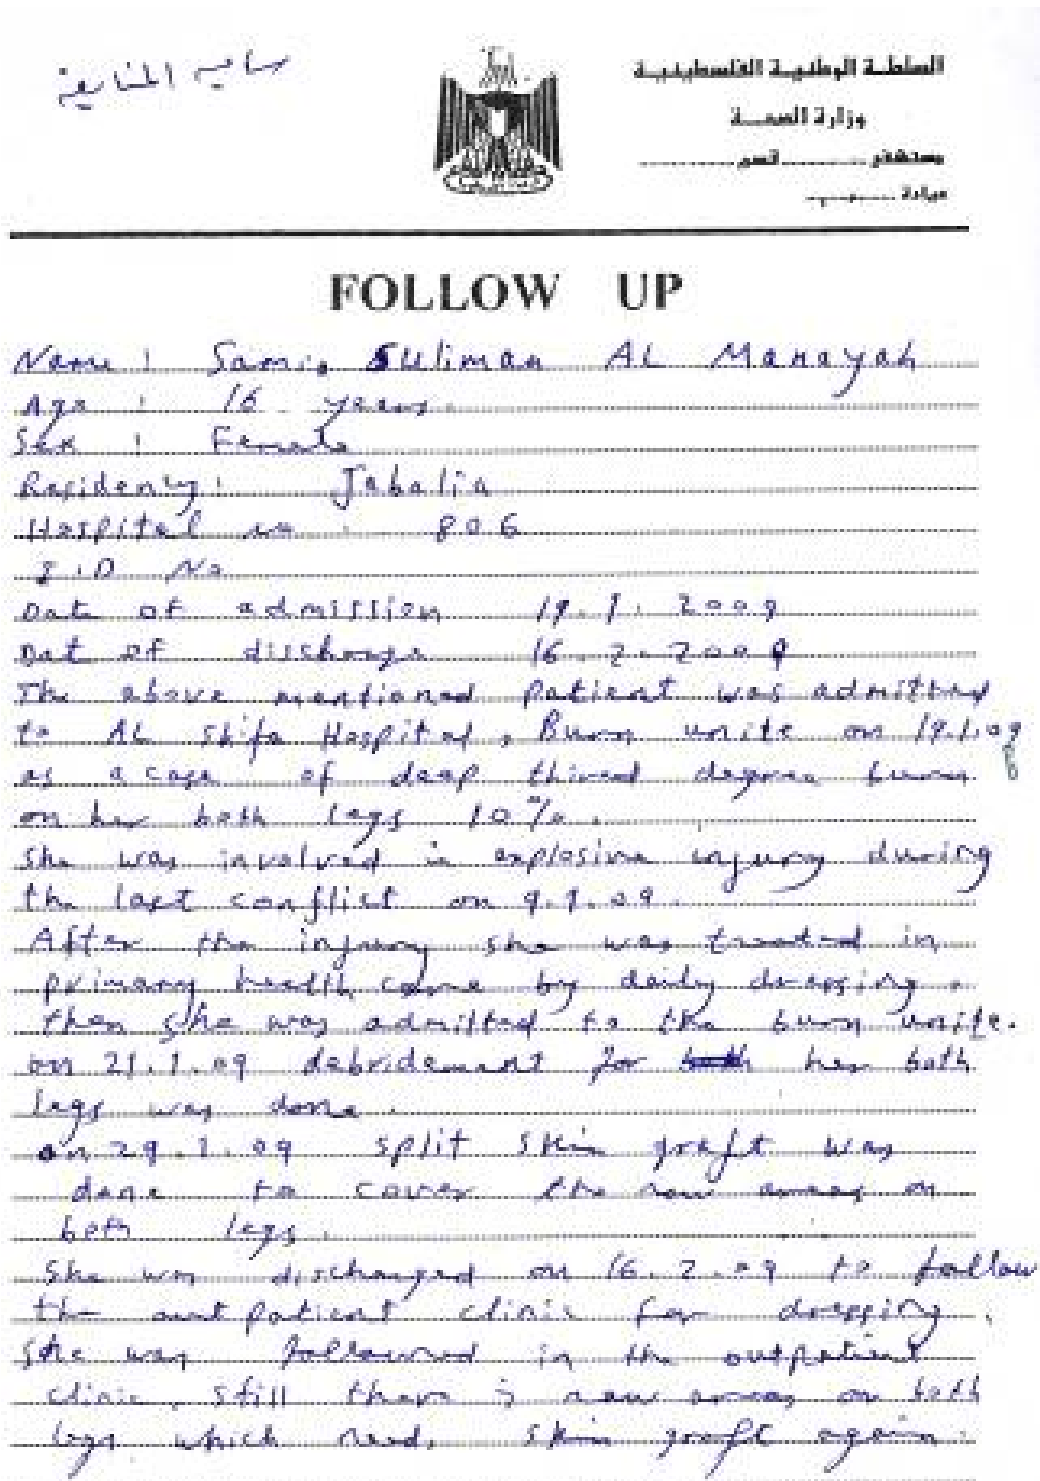 سامية المنايعة
السلطة الوطنية الفلسطينية
وزارة الصحة
مستشفى ............ قسم ............
عيادة ............
FOLLOW UP
Name : Samia Suliman AL Manayah
Age : 16 years
Sex : Female
Residency : Jabalia
Hospital no : 806
I.D No
Dat of admission 19.1.2009
Dat of discharge 16.2.2009
The above mentioned patient was admitted
to AL Shifa Hospital, Burn unite on 19.1.09
as a case of deep third degree burn
on her both legs 10%.
She was involved in explosive injury during
the last conflict on 9.1.09.
After the injury she was treated in
primary health care by daily dressing.
then she was admitted to the burn unite.
on 21.1.09 debridement for her both
legs was done.
on 29.1.09 split skin graft was
done to cover the raw areas on
both legs.
She was discharged on 16.2.09 to follow
the out patient clinic for dressing.
She was followed in the outpatient
clinic, still there is raw areas on both
legs which need skin graft again.